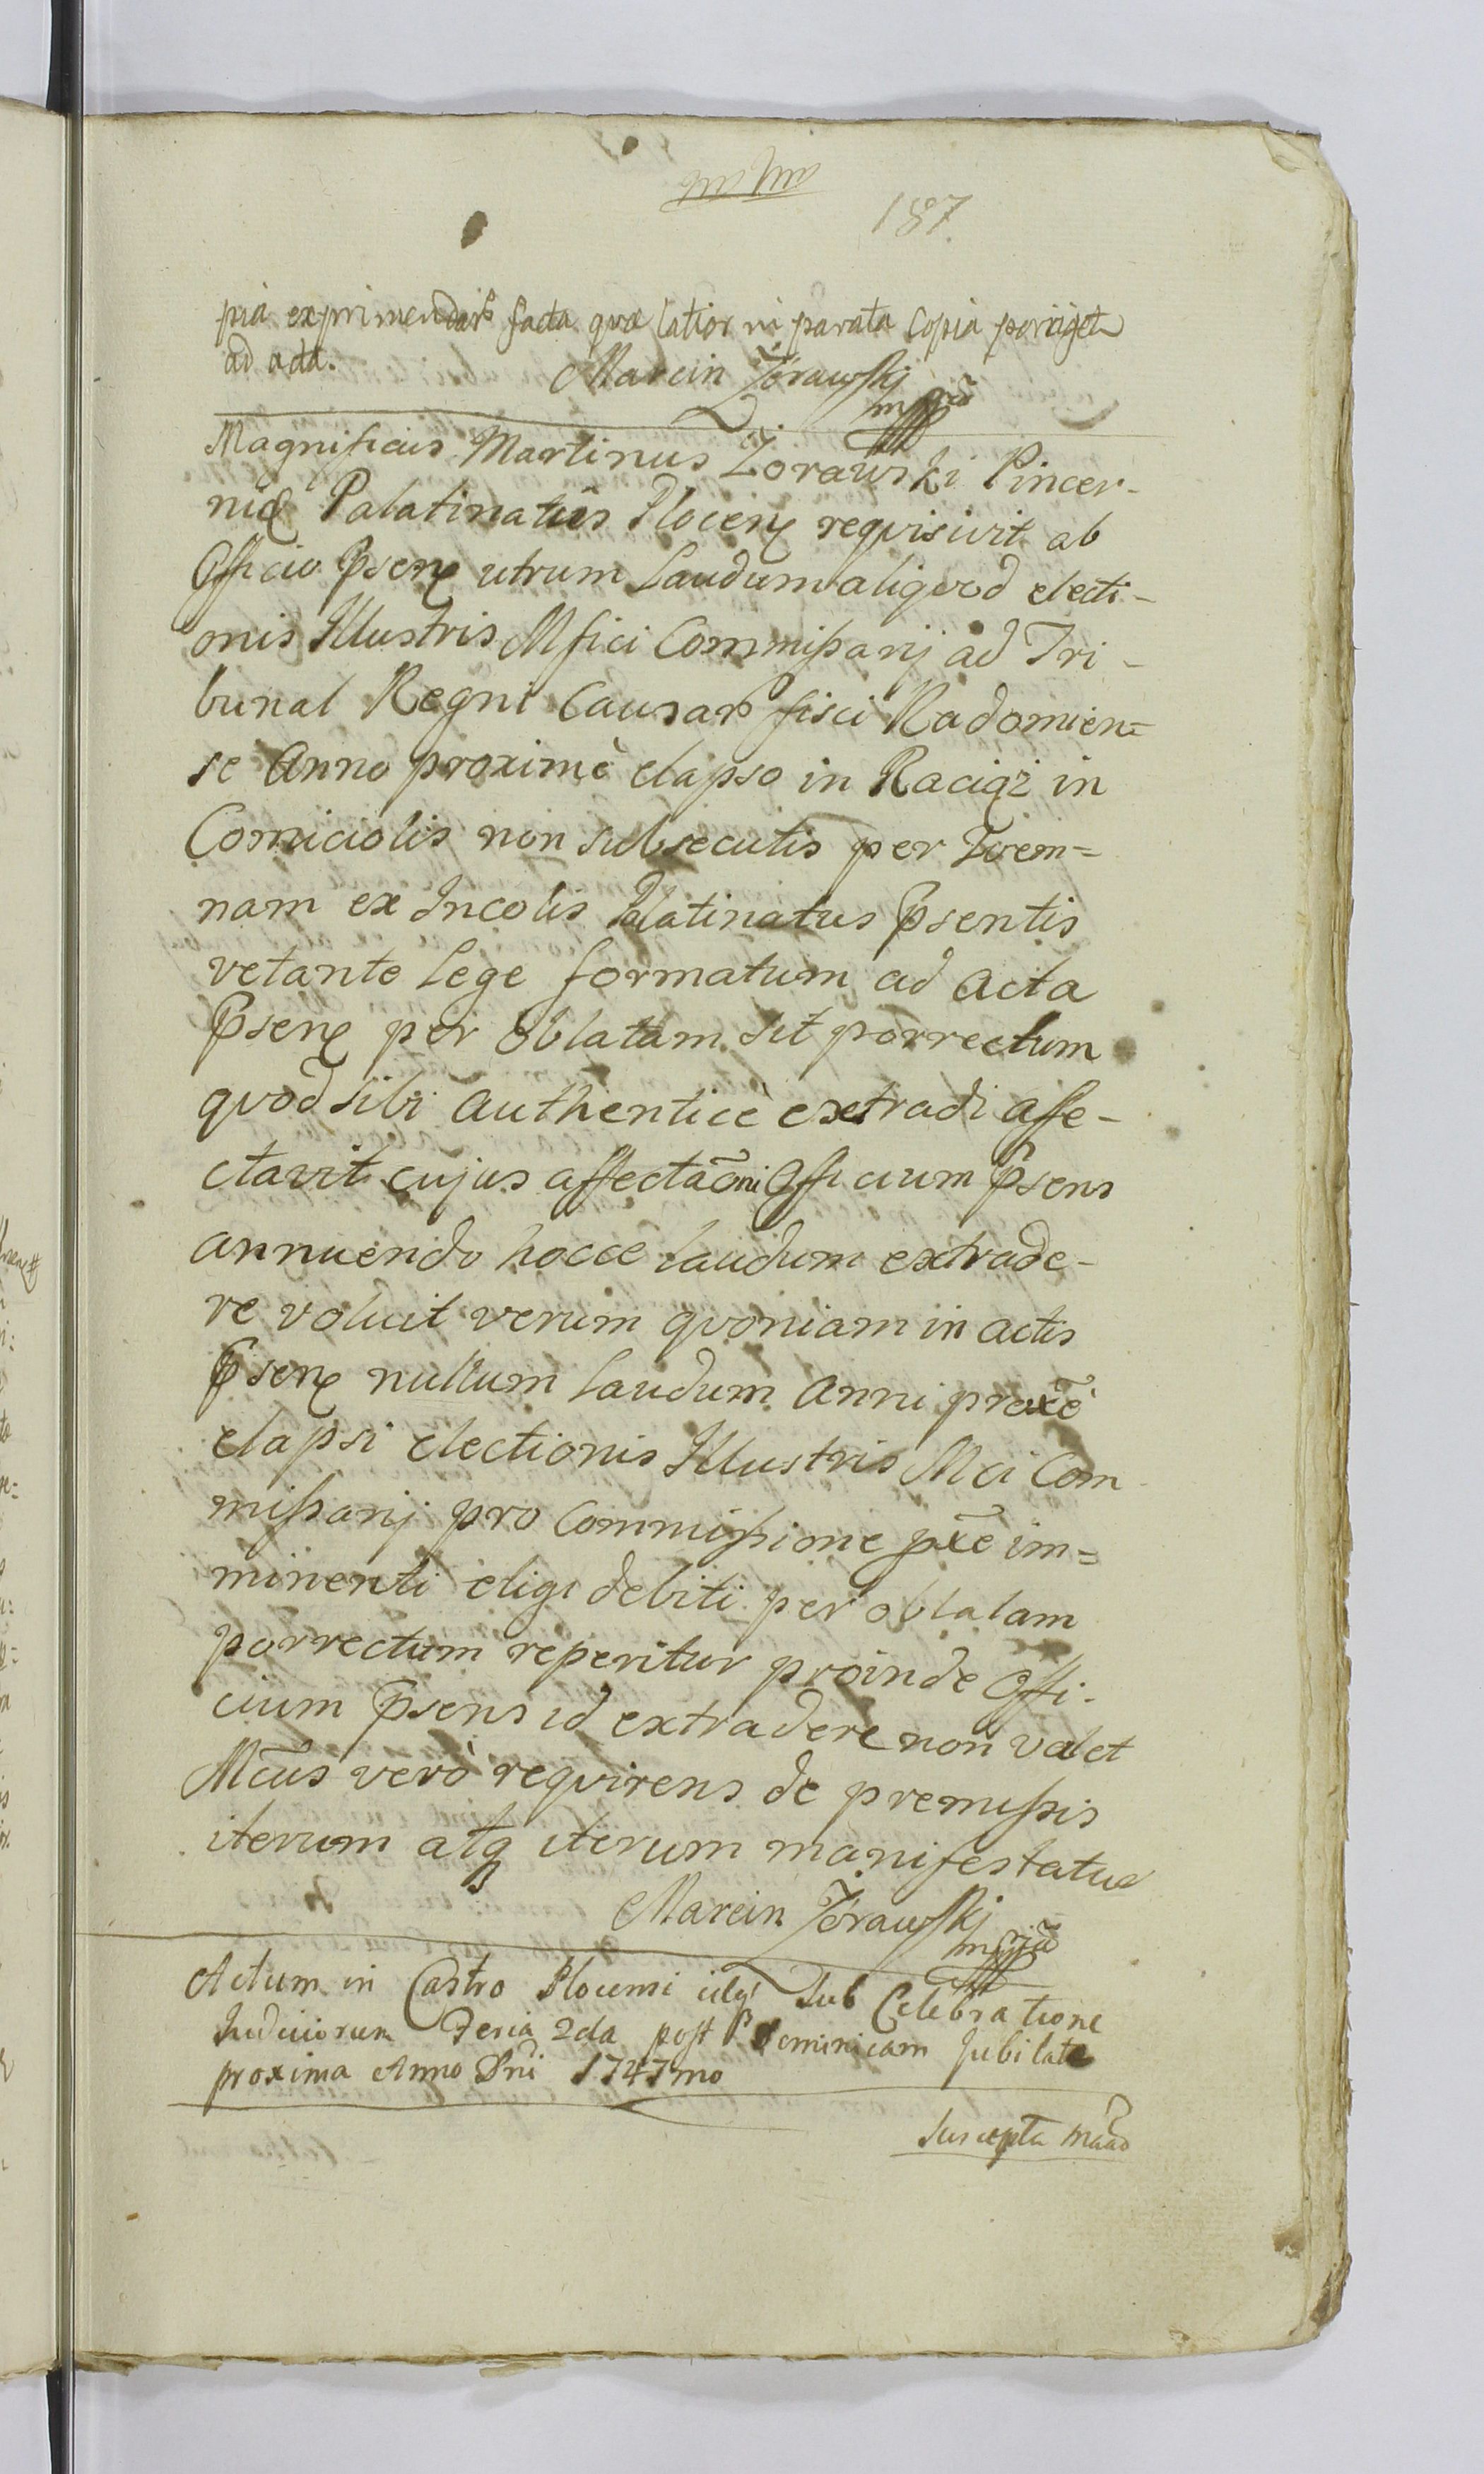 187
pia exprimendar facta quæ latior ni parata Copia poriget
ad acta.
Marcin Żórawskj
mpp
Magnificus Martinus Żorawski Pincer-
nid Palatinatûs Plocen requisivit ab
Officio Psen utrum Laudum aliquod electi-
onis Illustris Mfici Commissarij ad Tri-
bunal Regni Causar fisci Radomien=
se Anno proximè elapso in Raciąż in
Comiciolis non subsecutis per
nam ex Incolis Palatinatus Psentis
vetante Lege formatum ad acta
Psen per Oblatam sit porrectum
quod sibi authenticè extradi affe-
ctavit cujus affectaõni Officium Psens
annuendo hocce laudum extrade-
re voluit verum quoniam in actis
Psen nullum Laudum Anni proxẽ
elapsi electionis Illustris Mci Com
missarij pro Commissione pxẽ im=
minenti eligi debiti per oblatam
porrectum reperitur proinde Offi-
cium Psens id extradere non valet
Mcus verò requirens de premissis
iterum atq iterum manifestatur
Marcin Żórawskj
mpp
Actum in Castro Plocensi Sub Celebratione
Judiciorum Feria 2da post Dominicam Jubilate
proxima Anno Dni 1747mo
Suscepta